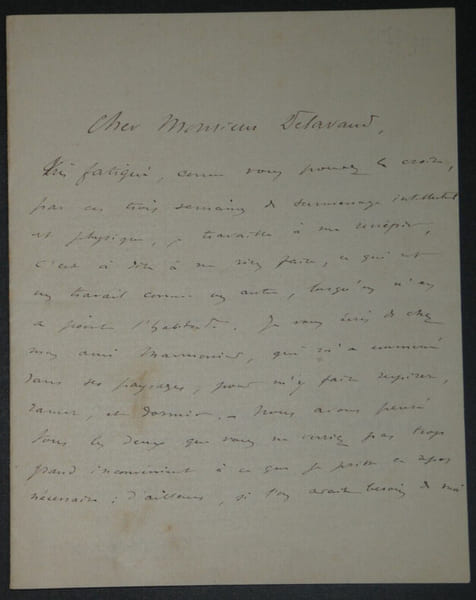 Cher Monsieur Delavaud,
Très fatigué, comme vous pouvez le croire,
par ces trois semaines de surmenage intellectuel
et physique, je travaille à me
c'est à dire à ne rien faire, ce qui est
un travail comme un autre, lorsqu'on n'en
a point l'habitude. Je vous écris de chez
mon ami qui m'a emmené
dans ses paysages, pour m'y faire respirer,
ramer, et dormir. - Nous avons pensé
tous les deux que vous ne verriez pas trop
grand inconvénient à ce que je prisse ce repos
nécessaire ; d'ailleurs, si l'on avait besoin de moi